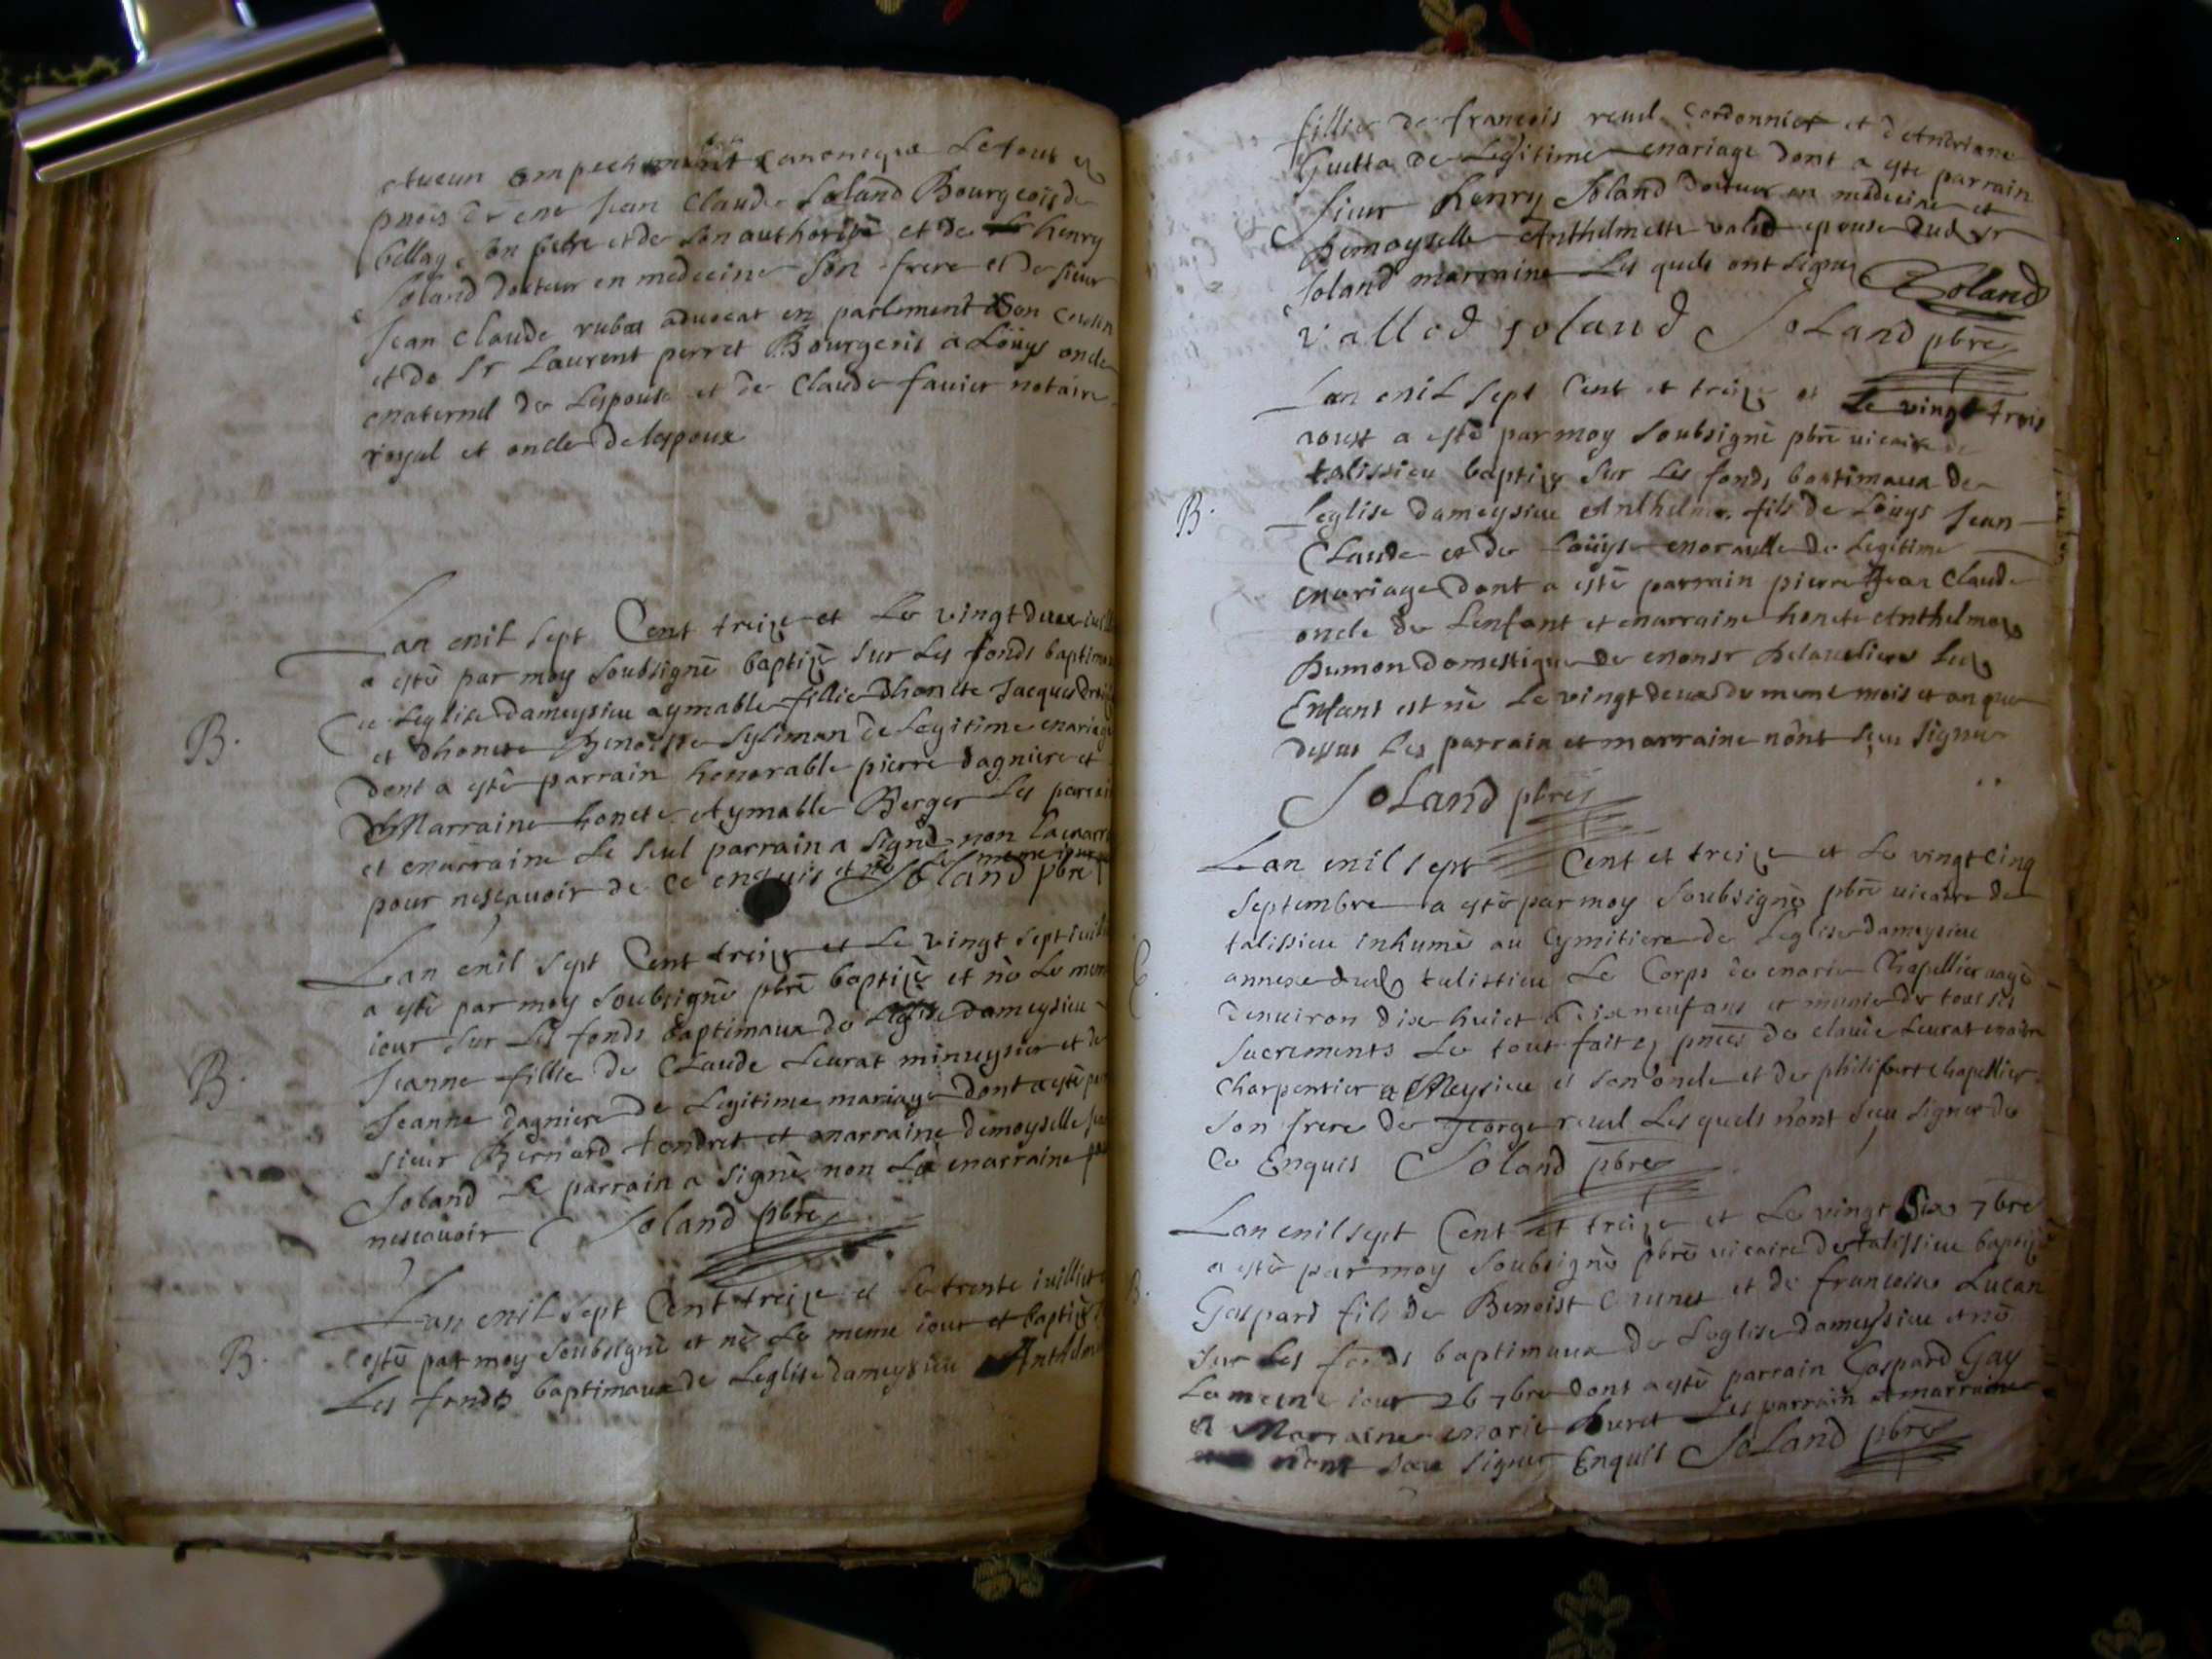 Aucun empechement canonique Le tout en
pnces de me Jean Claude Soland Bourgeois de
bellay son pere et de son authorité et de henry
Soland docteur en medecine son frere et de sieur
Jean Claude rubat aduocat en parlement son cousin
et de Sr Laurent perret Bourgeois a Löuys oncle
maternel de Lespouse et de Claude fauier notaire
royal et oncle de lespoux
Lan mil sept Cent treize et Le vingt deux
a esté par moy soubsigné baptizé sur Les fonds
B. de Leglise dameysieu aymable fillie dhoneste Jacques
et dhoneste Benoiste Syliman de Legitime mariage
dont a esté parrain honorable pierre dagniere et
Marraine honeste Aymable Berger Les
et marraine Le seul parrain a signé non
pour nescauoir de ce enquis et né Le meme
Soland pbre
Lan mil sept Cent treize et Le vingt sept
a esté par moy soubsigné pbre baptizé et né Le
iour sur Les fonds baptimaux de Leglise dameysieu
B. Jeanne fillie de Claude Leurat minuysier et de
Jeanne dagniere de Legitime mariage dont a esté
sieur Bernard tendret et marraine demoyselle
Soland Le parrain a signé non La marraine
nescauoir Soland pbre
Lan mil sept Cent treize et Le trente iuilliet
B. esté par moy soubsigné et né Le meme iour et baptizé
Les fonds baptimaux de Leglise dameysieu
fillie de francois reuel Cordonnier et dAndriane
Guetta de Legitime mariage dont a esté parrain
sieur henry Soland docteur en medecine et
Demoyselle Anthelmette valod epouse dud Sr
Soland marraine Les quels ont signé Soland
vallod soland Soland pbre
Lan mil sept Cent et treize et Le vingt trois
aoust a esté par moy soubsigné pbre uicaire de
talissieu baptizé sur Les fonds baptimaux de
B. Leglise dameysieu Anthelme fils de Löuys Jean
Claude et de Loüyse de Legitime
mariage dont a esté parrain pierre Jean Claude
oncle de Lenfant et marraine honeste Anthelme
Dumon domestique de monsr
Enfant est né Le vingt deux du meme mois et an que
dessus Les parrain et marraine nont sçeu signer
Soland pbre
Lan mil sept Cent et treize et Le vingt cinq
Septembre a esté par moy soubsigné pbre uicaire de
talissieu inhumé au Cymitiere de Leglise dameysieu
annexe dud talissieu Le Corps de marie Chapellier aagé
denuiron dix huict a dix neuf ans et munie de tous ses
sacrements Le tout fait en pnces de claude Leurat maitre
charpentier a Ameysieu et son oncle et de philiberte chapellier
son frere de George reuel Les quels nont sceu signer de
Ce Enquis Soland pbre
Lan mil sept Cent et treize et Le vingt Six 7bre
a esté par moy soubsigné pbre uicaire de talissieu baptizé
B. Gaspard fils de Benoist et de francoise Lucan
sur Les fonds baptimaux de Leglise dameysieu et né
Le meme iour 26 7bre dont a esté parrain Gaspard Gay
et Marraine marie Les parrain et marraine
nont sceu signer Enquis Soland pbre